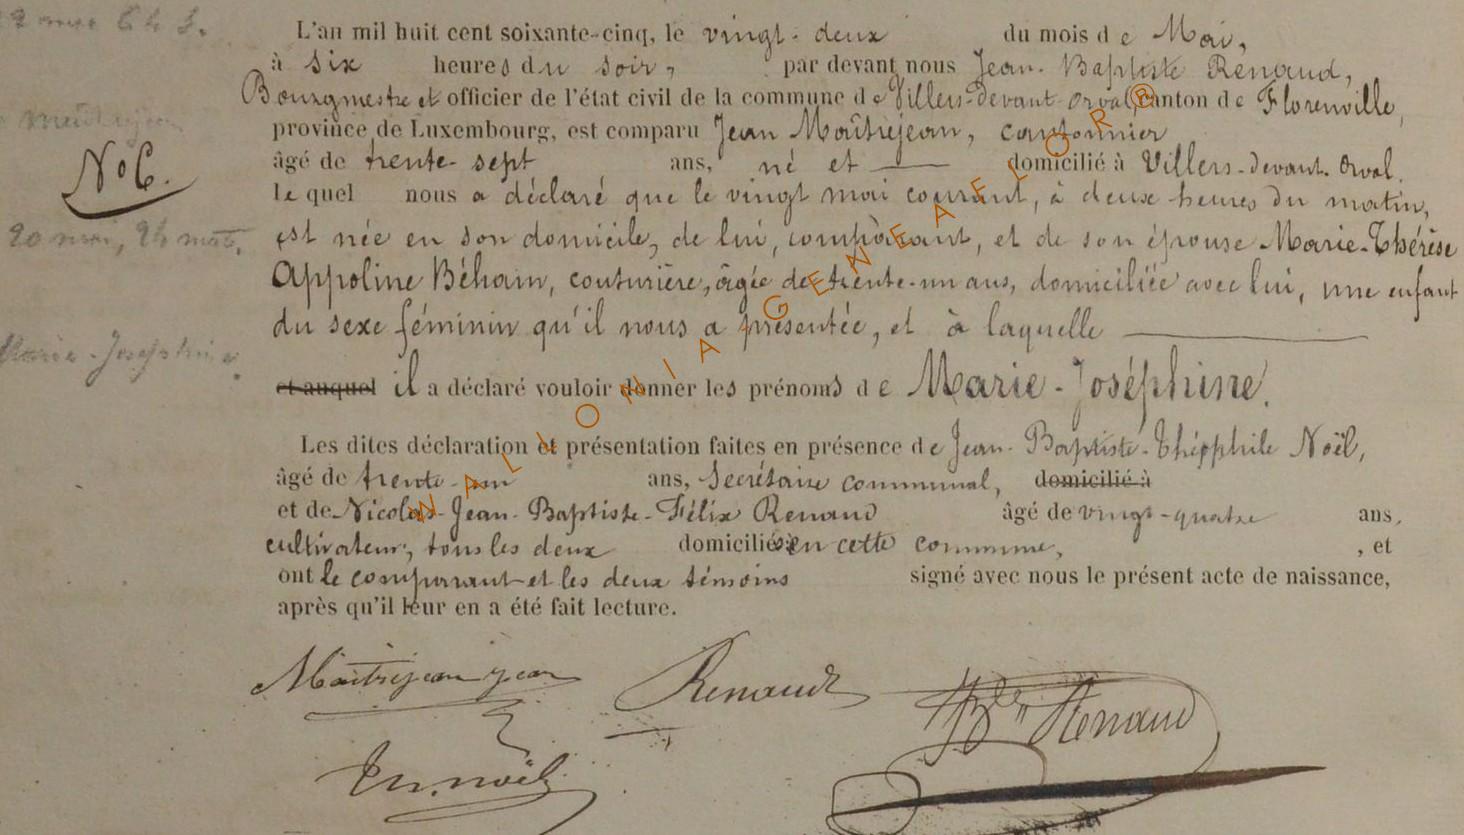 22 mai 6 h s.
L'an mil huit cent soixante-cinq, le vingt-deux du mois de Mai,
à six heures du soir, par devant nous Jean-Baptiste Renaud,
Bourgmestre et officier de l'état civil de la commune de Villers-devant-Orval, canton de Florenville,
Maitrejean
province de Luxembourg, est comparu Jean Maîtrejean, cantonnier
N° 6.
âgé de trente-sept ans, né et domicilié à Villers-devant-Orval.
le quel nous a déclaré que le vingt mai courant, à deux heures du matin,
20 mai, 2 h mat.
est née en son domicile, de lui, comparant, et de son épouse Marie-Thérèse
Appoline Béhain, couturière, âgée de trente-un ans, domiciliée avec lui, une enfant
du sexe féminin qu'il nous a présentée, et à laquelle
Marie-Joséphine.
et auquel il a déclaré vouloir donner les prénoms de Marie-Joséphine.
Les dites déclaration et présentation faites en présence de Jean-Baptiste-Théophile Noël,
âgé de trente-un ans, Secrétaire communal, domicilié à
et de Nicolas-Jean-Baptiste-Félix Renaud âgé de vingt-quatre ans,
cultivateur, tous les deux domiciliés en cette commune, , et
ont le comparant et les deux témoins signé avec nous le présent acte de naissance,
après qu'il leur en a été fait lecture.
Maitrejean jean Renaud Renaud
Th. noël
WALLONIA GENEALOGOR ®